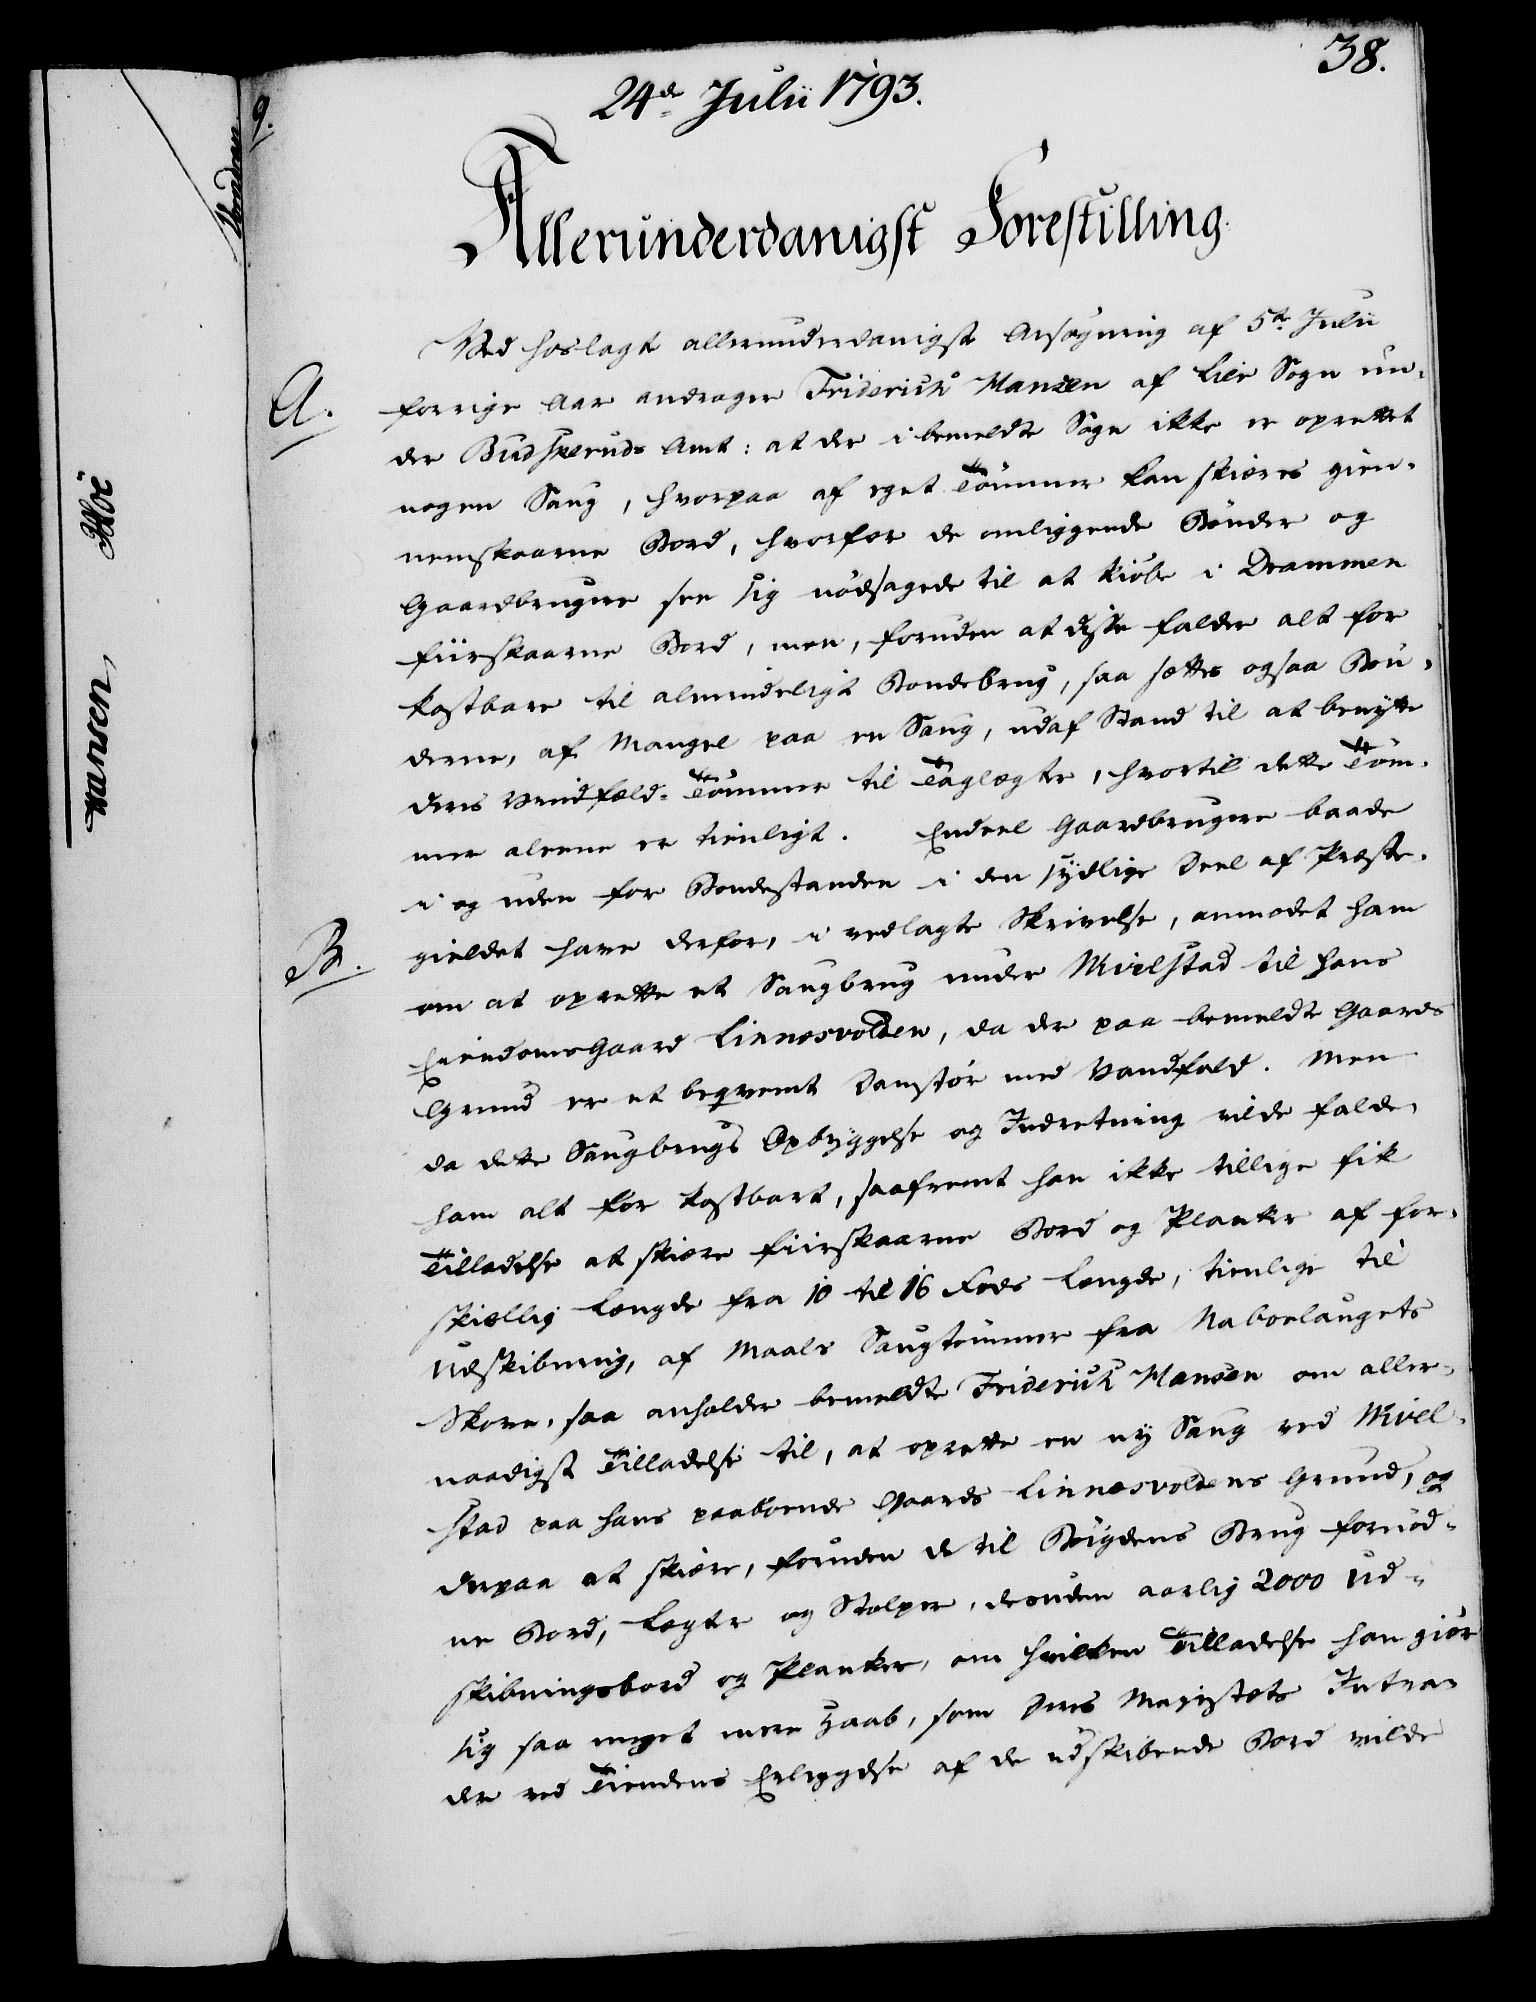 38.
24de Julii 1793.
Allerunderdanigst Forestilling.
Ved hoslagt allerunderdanigst Ansøgning af 5te Julii
A.
forrige Aar andrager Friderich Hansen af Lier Sogn un-
der Budskeruds Amt: at der i bemeldte Sogn ikke er oprettet
nogen Saug, hvorpaa af eget Tømmer kan skiæres gien-
nemskaarne Bord, hvorfor de omliggende Bønder og
Gaardbrugere see sig nødsagede til at kiøbe i Drammen
fiirskaarne Bord, men, foruden at disse falder alt for
kostbare til almindeligt Bondebrug, saa sættes ogsaa Bøn-
derne, af Mangel paa en Saug, udaf Stand til at benytte
deres Vindfæld-Tømmer til Taglægter, hvortil dette Tøm-
mer aleene er tienligt. Endeel Gaardbrugere baade
i og uden for Bondestanden i den sydlige Deel af Præste-
B.
gieldet have derfor, i vedlagte Skrivelse, anmodet ham
om at oprette et Saugbrug under Mielstad til hans
Eiendomsgaard Linnesvolden, da der paa bemeldte Gaards
Grund er et beqvemt Damstør med Vandfald. Men
da dette Saugbrugs Opbyggelse og Indretning vilde falde
ham alt for kostbart, saafremt han ikke tillige fik
Tilladelse at skiære fiirskaarne Bord og Planker af for-
skiellig Længde fra 10 til 16 Fods Længde, tienlige til
Udskibning, af Maals Saugtømmer fra Naboelaugets
Skove, saa anholder bemeldte Friderich Hansen om aller-
naadigst Tilladelse til, at oprette en ny Saug ved Miel-
stad paa hans paaboende Gaards Linnesvoldens Grund, og
derpaa at skiære, foruden de til Bøygdens Brug fornød-
ne Bord, Lægter og Stolper, desuden aarlig 2000 Ud-
skibningsbord og Planker, om hvilken Tilladelse han giør
sig saa meget mere Haab, som Deres Majestæts Intra-
der ved Tiendens Erlæggelse af de udskibende Bord vilde